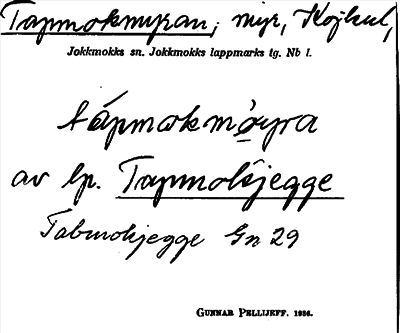 Tapmokmyran, myr, Kojkul,
Jokkmokks sn. Jokkmokks lappmarks tg. Nb l.
tápmɷkmòyra
av lp. Tapmokjegge
Tabmokjegge Gn 29
GUNNAR PELLIJEFF. 1936.